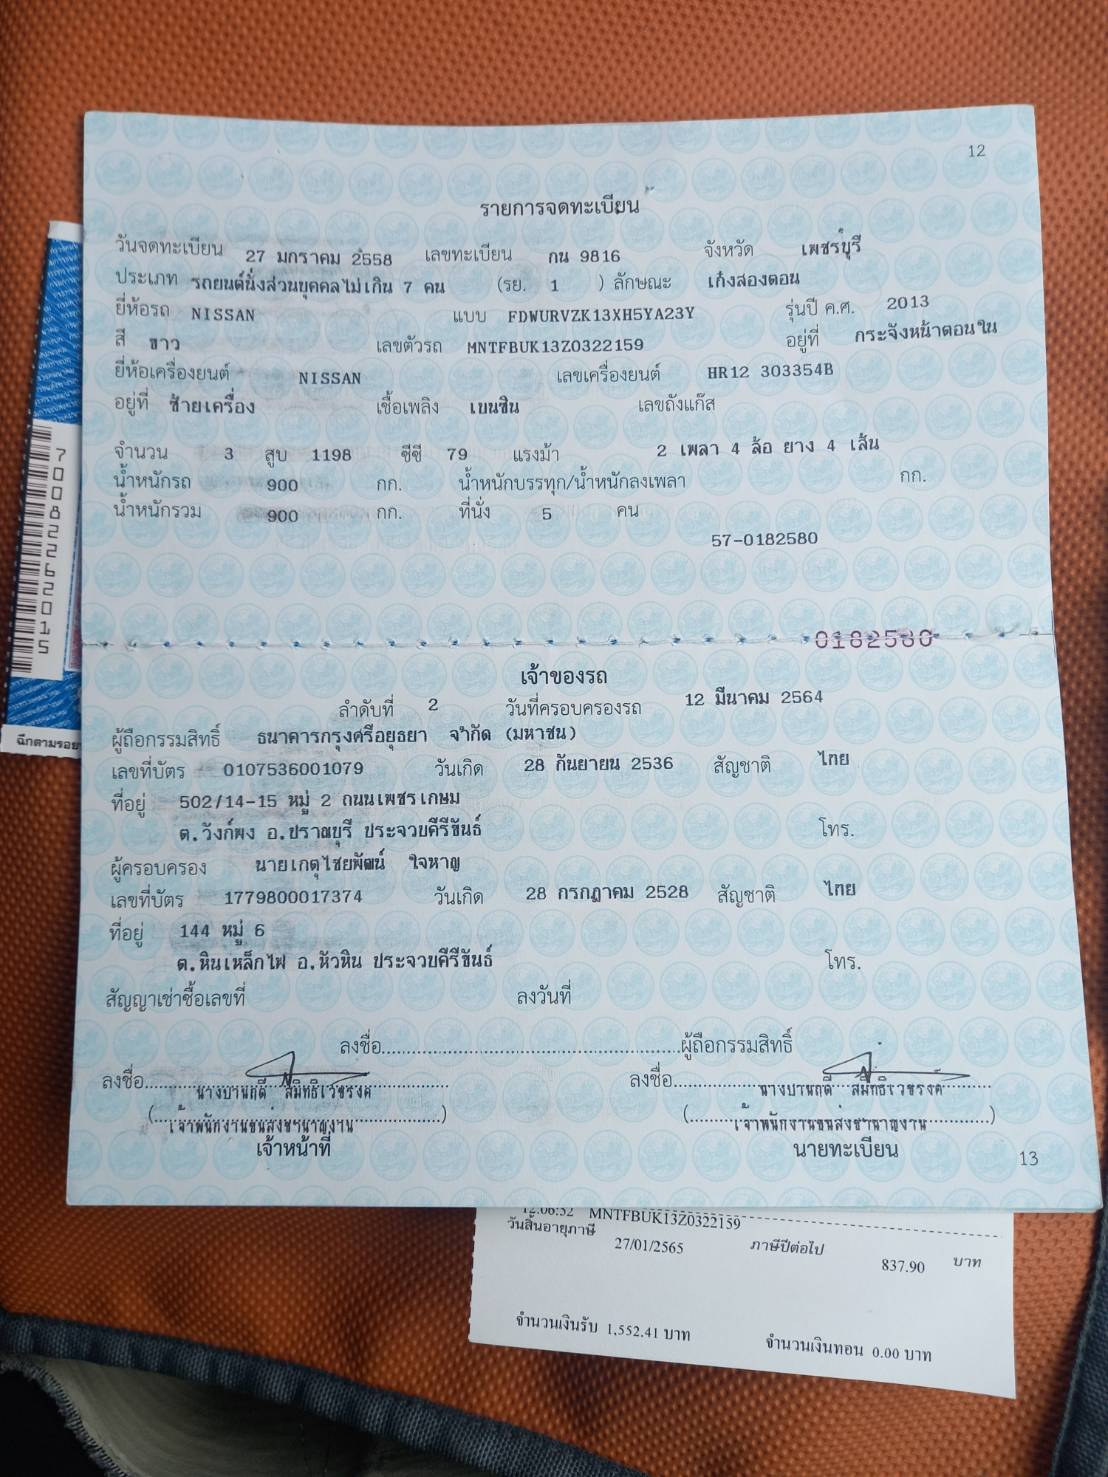 12
รายการจดทะเบียน
วันจดทะเบียน 27 มกราคม 2558 เลขทะเบียน กน 9816 จังหวัด เพชรบุรี
ประเภท รถยนต์นั่งส่วนบุคคลไม่เกิน 7 คน (รย. 1 ) ลักษณะ เก๋งสองตอน
ยี่ห้อรถ NISSAN แบบ FDWURVZK13XH5YA23Y รุ่นปี ค.ศ. 2013
สี ขาว เลขตัวรถ MNTFBUK13Z0322159 อยู่ที่ กระจังหน้าตอนใน
ยี่ห้อเครื่องยนต์ NISSAN เลขเครื่องยนต์ HR12 303354B
อยู่ที่ ซ้ายเครื่อง เชื้อเพลิง เบนซิน เลขถังแก๊ส
จำนวน 3 สูบ 1198 ซีซี 79 แรงม้า 2 เพลา 4 ล้อ ยาง 4 เส้น
น้ำหนักรถ 900 กก. น้ำหนักบรรทุก/น้ำหนักลงเพลา กก.
น้ำหนักรวม 900 กก. ที่นั่ง 5 คน
57-0182580
0182580
เจ้าของรถ
ลำดับที่ 2 วันที่ครอบครองรถ 12 มีนาคม 2564
ผู้ถือกรรมสิทธิ์ ธนาคารกรุงศรีอยุธยา จำกัด (มหาชน)
เลขที่บัตร 0107536001079 วันเกิด 28 กันยายน 2536 สัญชาติ ไทย
ที่อยู่ 502/14-15 หมู่ 2 ถนนเพชรเกษม
ต.วังก์พง อ.ปราณบุรี ประจวบคีรีขันธ์ โทร.
ผู้ครอบครอง นายเกตุไชยพัฒน์ ใจหาญ
เลขที่บัตร 1779800017374 วันเกิด 28 กรกฎาคม 2528 สัญชาติ ไทย
ที่อยู่ 144 หมู่ 6
ต.หินเหล็กไฟ อ.หัวหิน ประจวบคีรีขันธ์ โทร.
สัญญาเช่าซื้อเลขที่ ลงวันที่
ลงชื่อ............................................................ผู้ถือกรรมสิทธิ์
ลงชื่อ ลงชื่อ
เจ้าพนักงานขนส่งชำนาญงาน เจ้าพนักงานขนส่งชำนาญงาน
เจ้าหน้าที่ นายทะเบียน
13
12:06:52 MNTFBUK13Z0322159
วันสิ้นอายุภาษี 27/01/2565 ภาษีปีต่อไป 837.90 บาท
จำนวนเงินรับ 1,552.41 บาท จำนวนเงินทอน 0.00 บาท
70082262015
ฉีกตามรอย